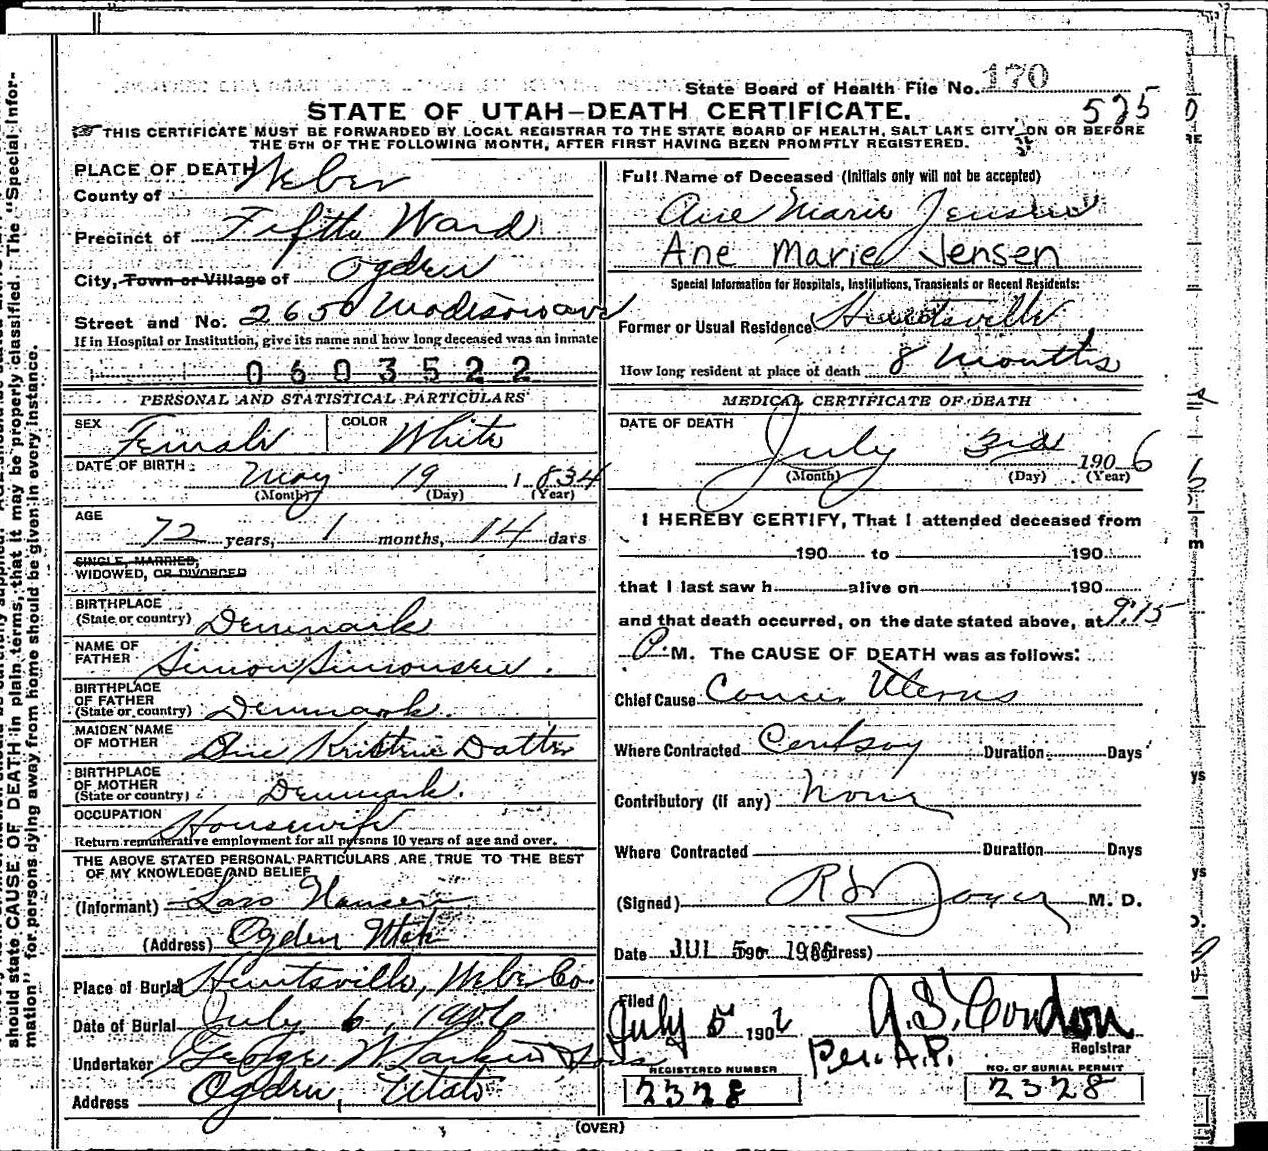 State Board of Health File No. 170
STATE OF UTAH—DEATH CERTIFICATE.
525
THIS CERTIFICATE MUST BE FORWARDED BY LOCAL REGISTRAR TO THE STATE BOARD OF HEALTH, SALT LAKE CITY, ON OR BEFORE
THE 5TH OF THE FOLLOWING MONTH, AFTER FIRST HAVING BEEN PROMPTLY REGISTERED.
PLACE OF DEATH
County of Weber
Precinct of Fifth Ward
City, Town or Village of Ogden
Street and No. 2650 Madison ave
If in Hospital or Institution, give its name and how long deceased was an inmate
0603522
PERSONAL AND STATISTICAL PARTICULARS
SEX Female COLOR White
DATE OF BIRTH May 19 1834
(Month) (Day) (Year)
AGE
72 years, 1 months, 14 days
SINGLE, MARRIED,
WIDOWED, OR DIVORCED
BIRTHPLACE
(State or country) Denmark
NAME OF
FATHER Simon Simonsen.
BIRTHPLACE
OF FATHER
(State or country) Denmark.
MAIDEN NAME
OF MOTHER Ane Kristine Datter
BIRTHPLACE
OF MOTHER
(State or country) Denmark.
OCCUPATION Housewife
Return remunerative employment for all persons 10 years of age and over.
THE ABOVE STATED PERSONAL PARTICULARS ARE TRUE TO THE BEST
OF MY KNOWLEDGE AND BELIEF
(Informant) Lars Hansen
(Address) Ogden Utah
Place of Burial Huntsville, Weber Co.
Date of Burial July 6, 1906
Undertaker George W. Larkin & Sons
Address Ogden Utah
Full Name of Deceased (Initials only will not be accepted)
Ane Marie Jensen
Ane Marie Jensen
Special Information for Hospitals, Institutions, Transients or Recent Residents:
Former or Usual Residence Huntsville
How long resident at place of death 8 Months
MEDICAL CERTIFICATE OF DEATH
DATE OF DEATH
July 3rd 1906
(Month) (Day) (Year)
I HEREBY CERTIFY, That I attended deceased from
190 to 190
that I last saw h alive on 190
and that death occurred, on the date stated above, at 9:15
P. M. The CAUSE OF DEATH was as follows:
Chief Cause Cancer Uterus
Where Contracted Duration Days
Contributory (if any) None
Where Contracted Duration Days
(Signed) M. D.
Date JUL 5 1906 (Address)
Filed
July 5 190 A. S. Condon
Per. A.P. Registrar
REGISTERED NUMBER
2328
NO. OF BURIAL PERMIT
2328
(OVER)
should state CAUSE OF DEATH in plain terms, that it may be properly classified. The "Special Infor-
mation" for persons dying away from home should be given in every instance.